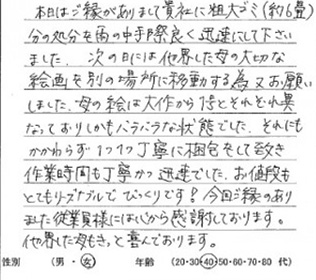 本日はご縁がありまして貴社に粗大ゴミ(約6畳)
分の処分を雨の中手際良く迅速にして下さい
ました。次の日には他界した母の大切な
絵画を別の場所に移動する為又お願い
しました。母の絵は大作から and それぞれ異
なっておりしかもバラバラな状態でした。それにも
かかわらず1つ1つ丁寧に梱包をして頂き
作業時間も丁寧かつ迅速でした。お値段も
とてもリーズナブルでびっくりです!今回ご縁のあり
ました従業員様には心から感謝しております。
他界した母もきっと喜んでおります。
性別 (男・女) 年齢 (20・30・40・50・60・70・80 代)